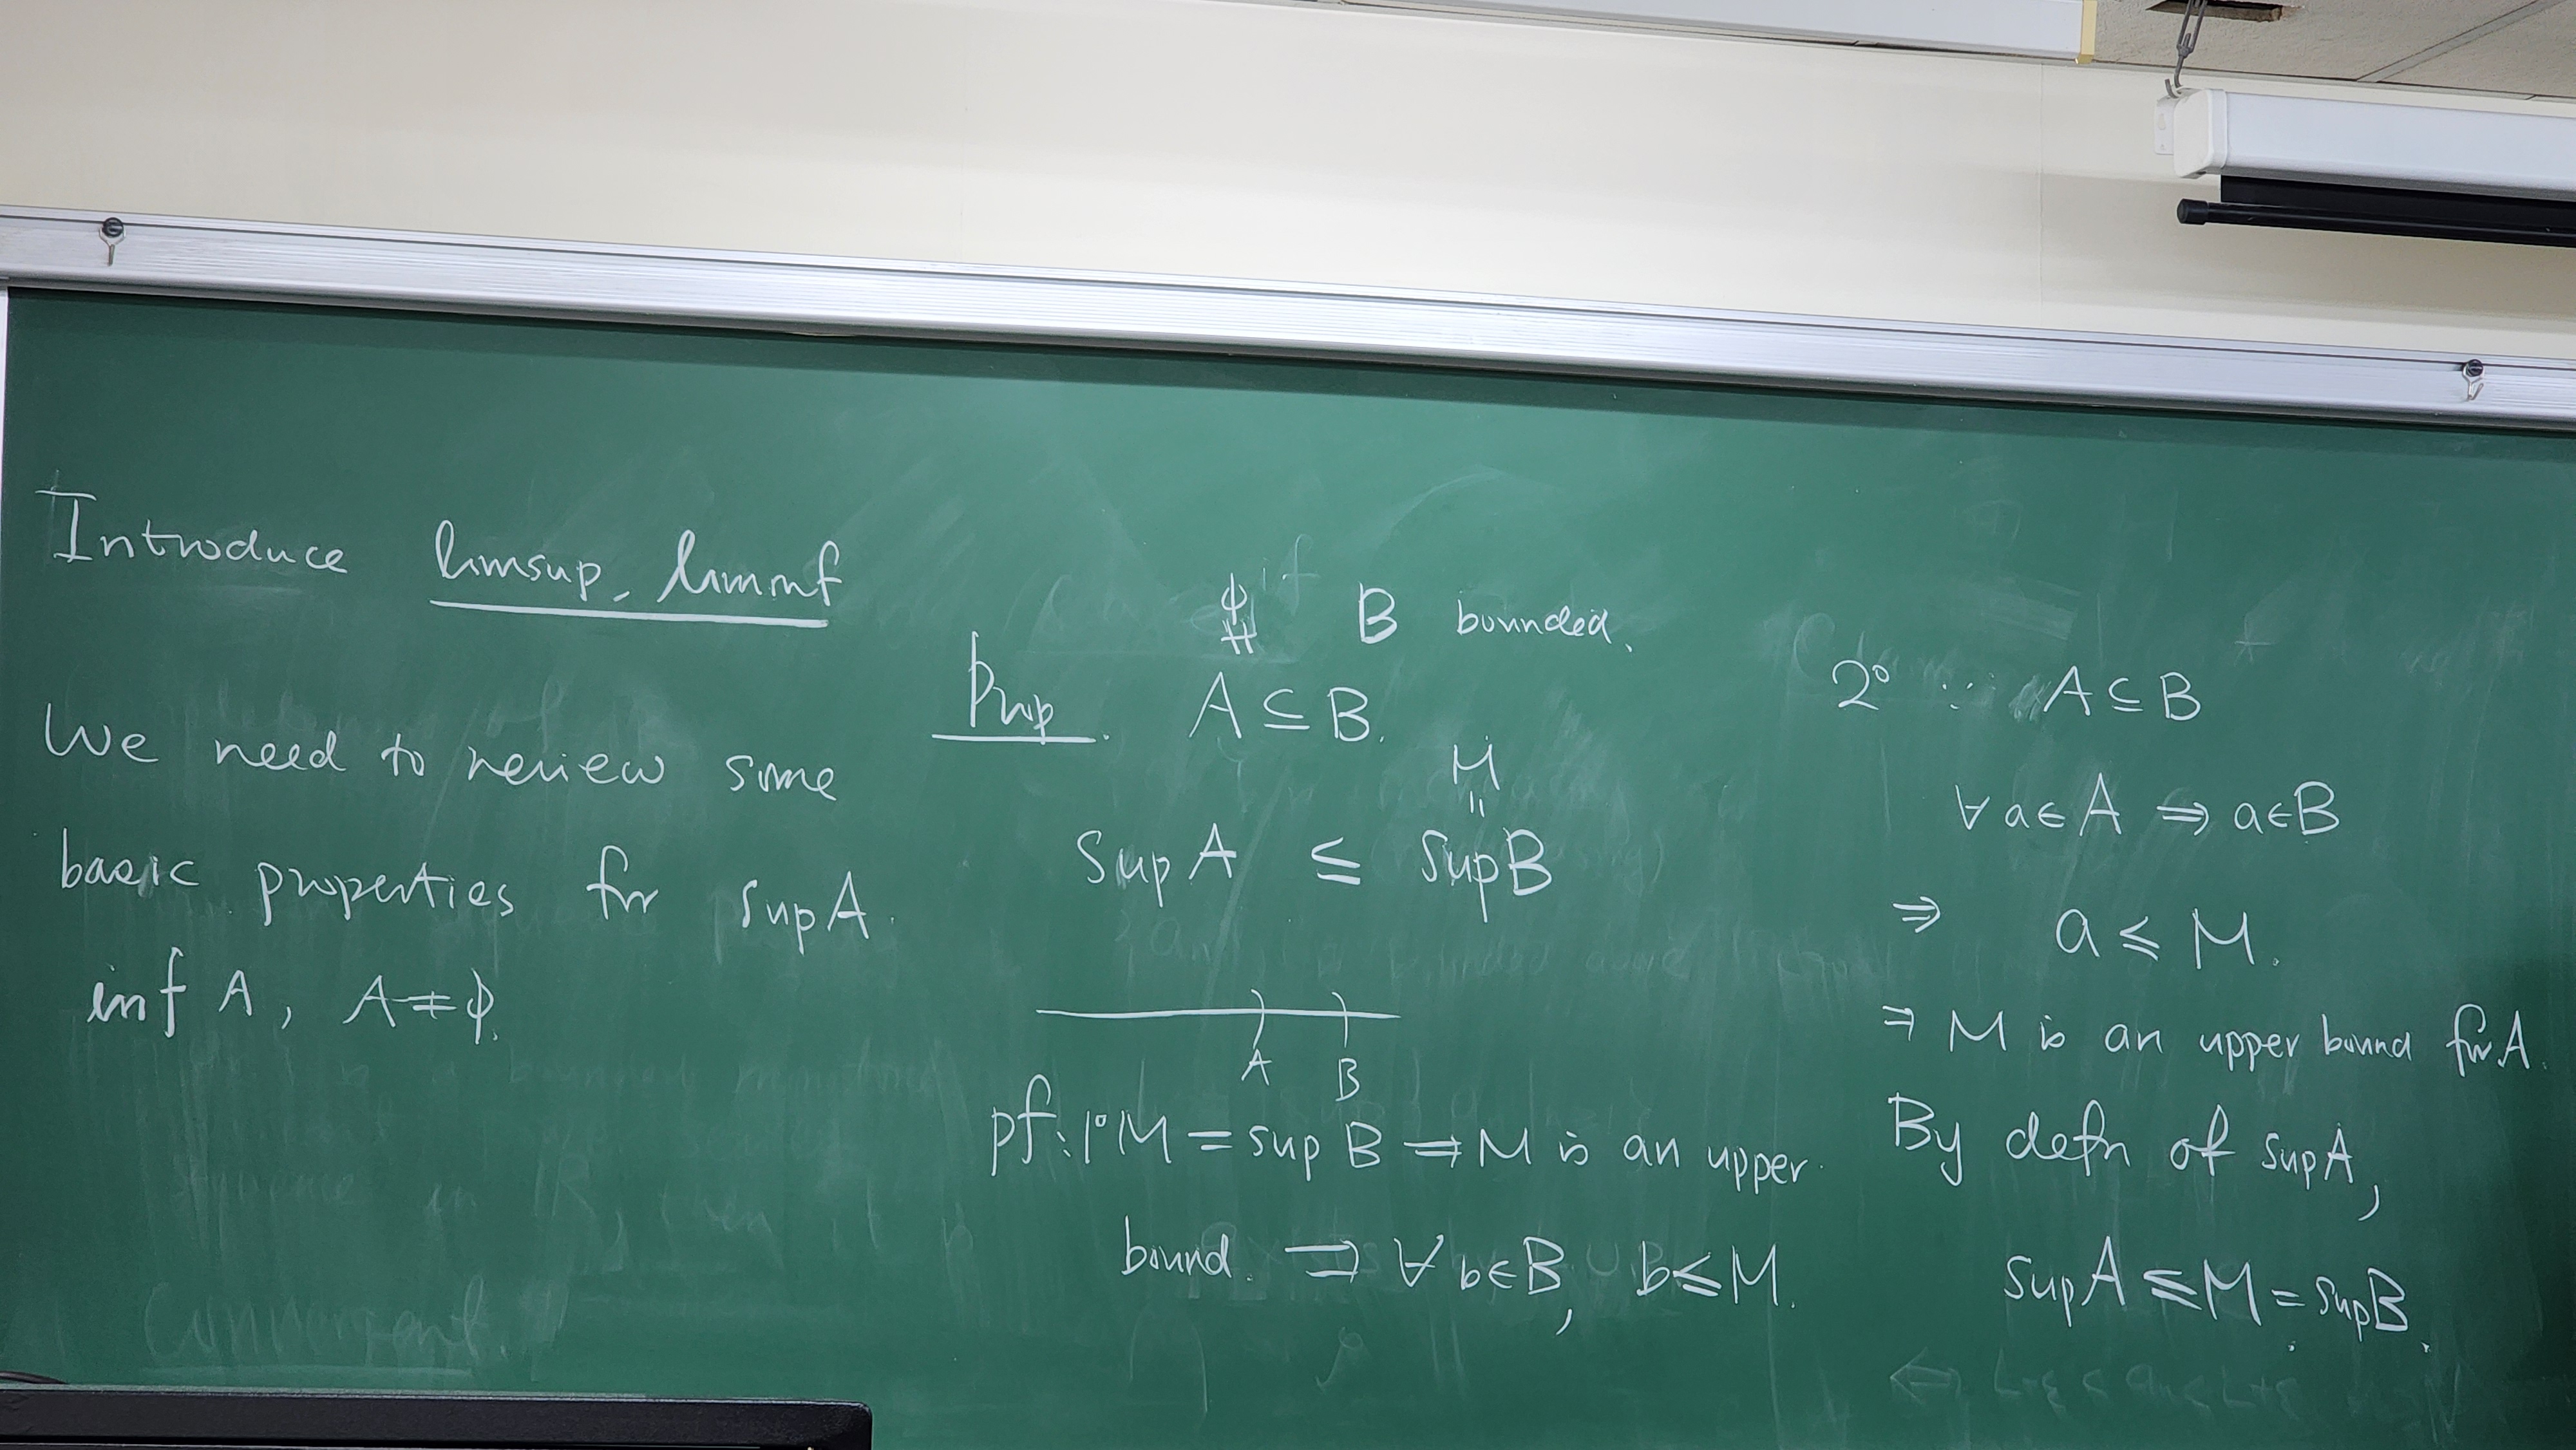 Introduce limsup, liminf
We need to review some
basic properties for sup A.
inf A, A ≠ φ.
φ B bounded.
∦
Prop. A ⊆ B.
M
=
Sup A ≤ Sup B
A B
pf: 1° M = sup B ⇒ M is an upper
bound. ⇒ ∀ b∈B, b ≤ M.
2° ∵ A ⊆ B
∀ a∈A ⇒ a∈B
⇒ a ≤ M.
⇒ M is an upper bound for A.
By defn of sup A,
sup A ≤ M = sup B.